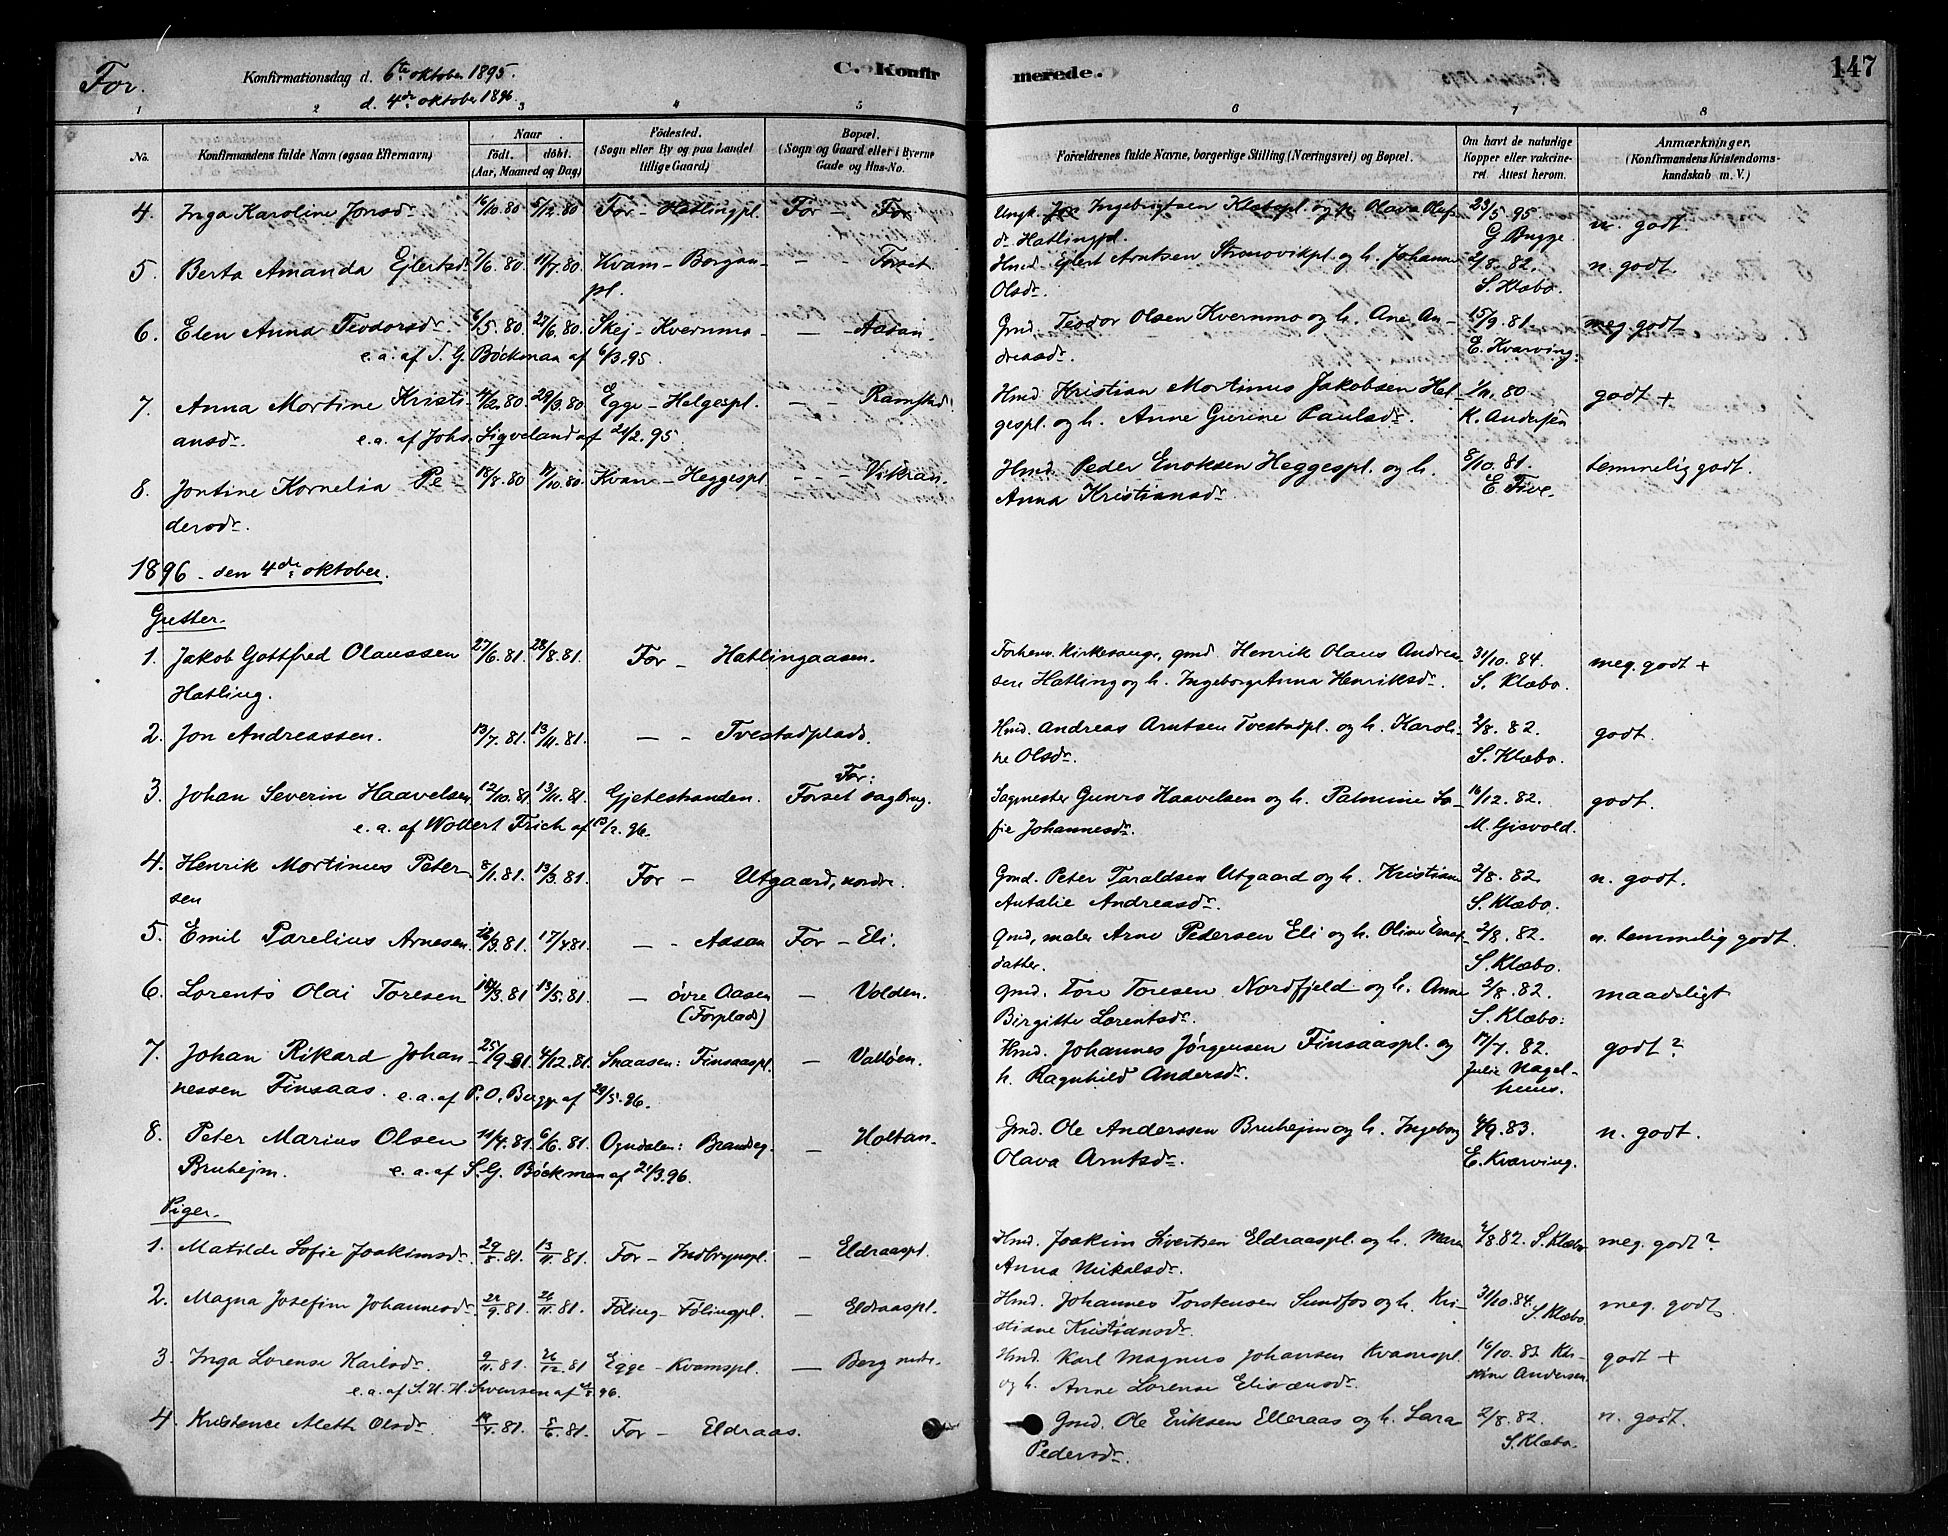 For.
Konfirmationsdag d. 6te oktober 1895.
d. 4de oktober 1896.
C. Konfirmerede.
147
1 2 3 4 5 6 7 8
No.
Konfirmandens fulde Navn (ogsaa Efternavn)
Naar
födt. döbt.
(Aar, Maaned og Dag)
Födested.
(Sogn eller By og paa Landet
tillige Gaard)
Bopæl.
(Sogn og Gaard eller i Byerne
Gade og Hus-No.
Forældrenes fulde Navne, borgerlige Stilling (Næringsvei) og Bopæl.
Om havt de naturlige
Kopper eller vakcine-
ret. Attest herom.
Anmærkninger.
(Konfirmandens Kristendoms-
kundskab m. V.)
4. Inga Karoline Jonsdr. 16/10.80 5/12.80 For - Hatlingpl. For - For Ungk. Ingebrigtsen og p. Olava Olaf- 23/5.95 n. godt.
dr. Hatlingpl. G Bugge.
5. Berta Amanda Ejlertsdr. 7/6.80 11/7.80 Kvam - Borgan- - - Forset Hmd. Ejlert Arntsen Strandvikpl. og h. Johanna 2/8.82. n. godt.
pl. Olsdr. S. Klæbo.
6. Elen Anna Teodorsdr. 6/5.80 27/6.80 Skej - Kvernmo - - Aasan. Gmd. Teodor Olsen Kvernmo og h. Ane An- 15/9.81. meg. godt
e. a. af S. G. Böckman af 6/3.95 dreasdr. E. Kvarving.
7. Anna Mortine Kristi- 4/2.80 29/3.80 Egge - Helgespl. - - Ramstad. Hmd. Kristian Mortinus Jakobsen Hel- 1/11.80 godt +
ansdr. e. a. af Johs. Sigveland af 21/2.95. gespl. og h. Anne Gurine Paulsdr. K. Andersen
8. Jontine Kornelia Pe 18/8.80 17/10.80 Kvam - Heggespl - - - Vikran. Hmd. Peder Enoksen Heggespl. og h. 8/10.81. temmelig godt.
dersdr. Anna Kristiansdr. E. Five.
1896 - den 4de oktober.
Gutter.
1. Jakob Gottfred Olaussen 27/6.81. 28/8.81. For - Hatlingaasen. Forhenv. Kirkesangr, gmd. Henrik Olaus Andrea- 31/10.84. meg. godt +
Hatling. sen Hatling og h. Ingeborg Anna Henriksdr. S. Klæbo.
2. Jon Andreassen. 13/7.81. 13/11.81. - - Tvestadplads. Hmd. Andreas Arntsen Tvestadpl. og h. Karoli- 2/8.82. godt.
ne Olsdr. S. Klæbo.
3. Johan Severin Haavelsen 12/10.81. 13/11.81. Gjetestranden. For: Forset sagbrug. Sagmester Gunro Haavelsen og h. Palmine So- 16/12.82. godt.
e. a. af Wollert Frich af 13/2.96. fie Johannesdr. M. Gisvold.
4. Henrik Mortinus Peter- 8/1.81. 13/3.81. For - Utgaard, nordre. Gmd. Peter Taraldsen Utgaard og h. Kristiane 2/8.82. n. godt.
sen Antalie Andreasdr. S. Klæbo.
5. Emil Parelius Arnesen. 12/3.81. 17/4 81. - - Aasan For - Eli. Gmd, maler Arne Pedersen Eli og h. Oline 2/8.82. n. temmelig godt.
datter. S. Klæbo.
6. Lorents Olai Toresen 18/3.81 13/5.81. - övre Aasen - Volden. Gmd. Tore Toresen Nordfjeld og h. Anne 2/8.82. maadeligt
(Forplads) Birgitte Lorentsdr. S. Klæbo.
7. Johan Rikard Johan- 25/9.81 4/12.81. Snaasen: Finsaaspl. - Valløen. Hmd. Johannes Jørgensen Finsaaspl. og 17/7.82. godt?
nessen Finsaas. e. a. af P. O. Bugge af 29/5.96. h. Ragnhild Andersdr. Julie Nagel-
huus.
8. Peter Marius Olsen 10/4.81. 6/6.81. Ogndalen: Brandeg. - Holtan. Gmd. Ole Anderssen Bruhejm og h. Ingeborg 4/9.83. n. godt.
Bruhejm. e. a. af S. G. Böckman af 21/3.96. Olava Arntsdr. E. Kvarving.
Piger.
1. Matilde Sofie Joakimsdr. 29/8.81. 13/11.81. For - Indbrynpl. - Eldraaspl. Hmd. Joakim Sivertsen Eldraaspl. og h. Maren 2/8.82. S. Klæbo meg. godt?
Anna Mikalsdr.
2. Magna Josefine Johannesdr. 22/9.81. 26/11.81. Föling - Fölingpl. - Eldraaspl. Hmd. Johannes Torstensen Sundfos og h. Kri- 31/10.84. S. Klæbo. meg. godt
stiane Kristiansdr.
3. Inga Lorense Karlsdr. 9/11.81. 26/12.81 Egge - Kvamspl. - Berg nedre. Hmd. Karl Magnus Johansen Kvamspl. 16/10.82 Kri- godt +
e. a. af S. H. H. Svensen af 96. og h. Anne Lorense Elisæusdr. stine Andersen.
4. Kristence Aleth Olsdr. 19/4.81. 5/6.81. For - Eldraas. Gmd. Ole Eriksen Elleraas og h. Sara 2/8.82. n. godt.
Pedersdr. S. Klæbo.